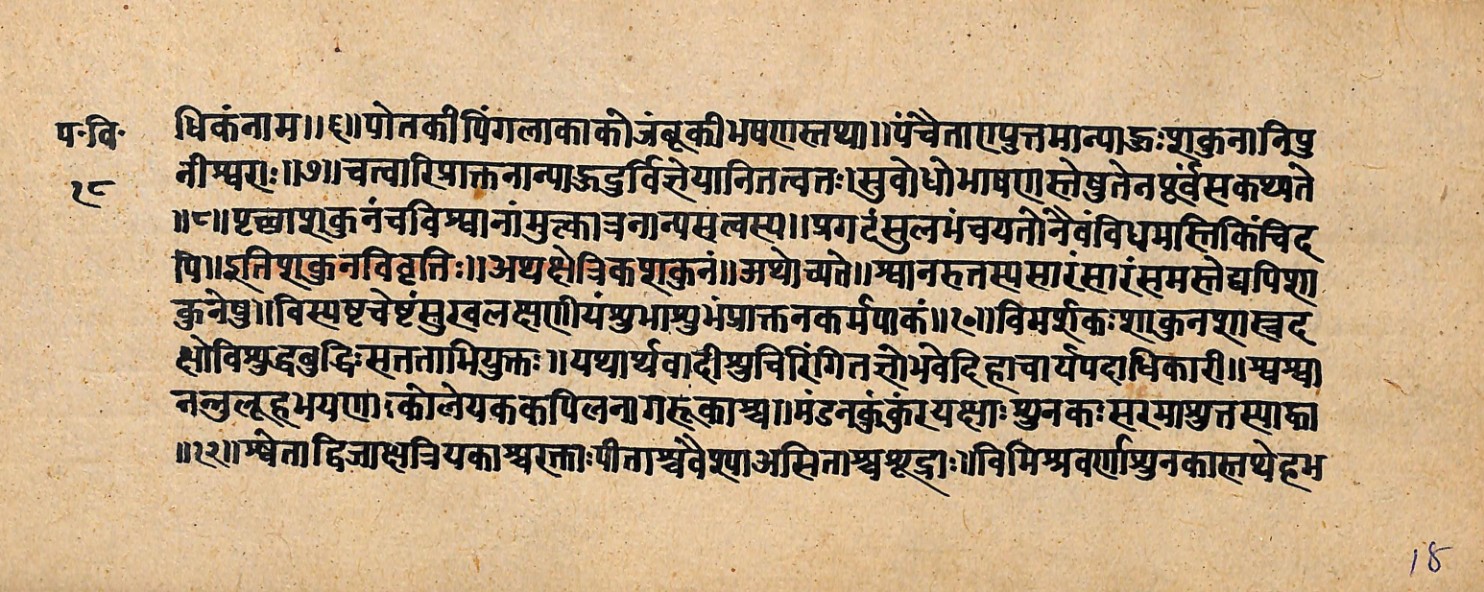 प॰वि॰
१८
धिकंनाम॥६॥पोतकीपिंगलाकाकोजंबूकीभषणस्तथा॥पंचैताएषुत्तमान्प्राहुःशकुनानिपु
नीश्वराः॥७॥चत्वारिप्राक्तनान्प्राहुदुर्विज्ञेयानितत्वतः।सुबोधोभाषणस्तेषुतेनपूर्वंसकथ्यते
॥८॥पृच्छाशकुनंचविश्वानांमुत्कात्रनान्यसत्वस्य॥प्रगटंसुलभंचयतोनैवंविधमस्तिकिंचिद
पि॥इतिशकुनविवृत्तिः॥अथक्षेत्रिकशकुनं॥अथोच्यते॥श्वानरुतस्यसारंसारंसमस्तेष्वपिशा
कुनेषु॥विस्पष्टचेष्टंसुखलक्षणीयंशुभाशुभंप्राक्तनकर्मपाकं॥१०॥विमर्शकःशाकुनशास्त्रद
क्षोविशुद्धबुद्धिःसतताभियुक्तः॥यथार्थवादीशुचिरिंगितज्ञोभवेदिहाचार्यपदाधिकारी॥श्वश्वा
नलुलूहभयणाःकोलेयककपिलनागहूकाश्च॥मंडनकुंकुंरयक्षाःशुनकःसरमाशुत्तस्याका
॥१२॥श्वेताद्विजाक्षत्रियकाश्चरक्ताःपीताश्चवैश्याअसिताश्चशूद्राः॥विमिश्रवर्णाशुनकास्तथेहभ
18